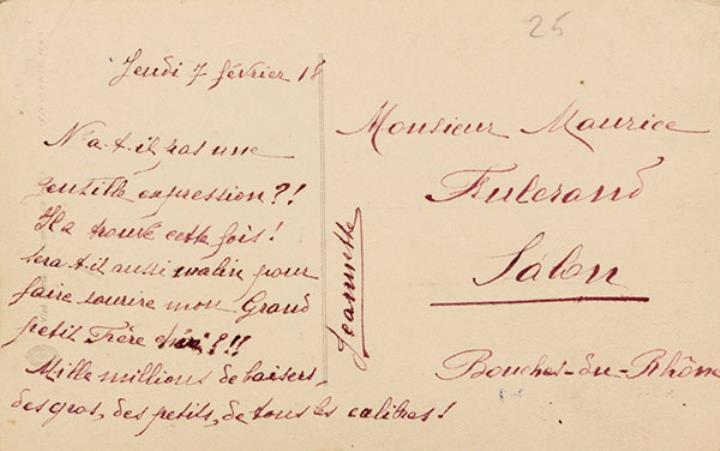 25
Jeudi 7 février 18
N'a-t-il pas une
gentille expression ?!
Il a trouvé cette fois !
sera-t-il aussi malin pour
faire sourire mon Grand
petit Frère chéri ?!!
Mille millions de baisers,
des gros, des petits, de tous les calibres !
Jeannette
Monsieur Maurice
Fulcrand
Salon
Bouches-du-Rhône